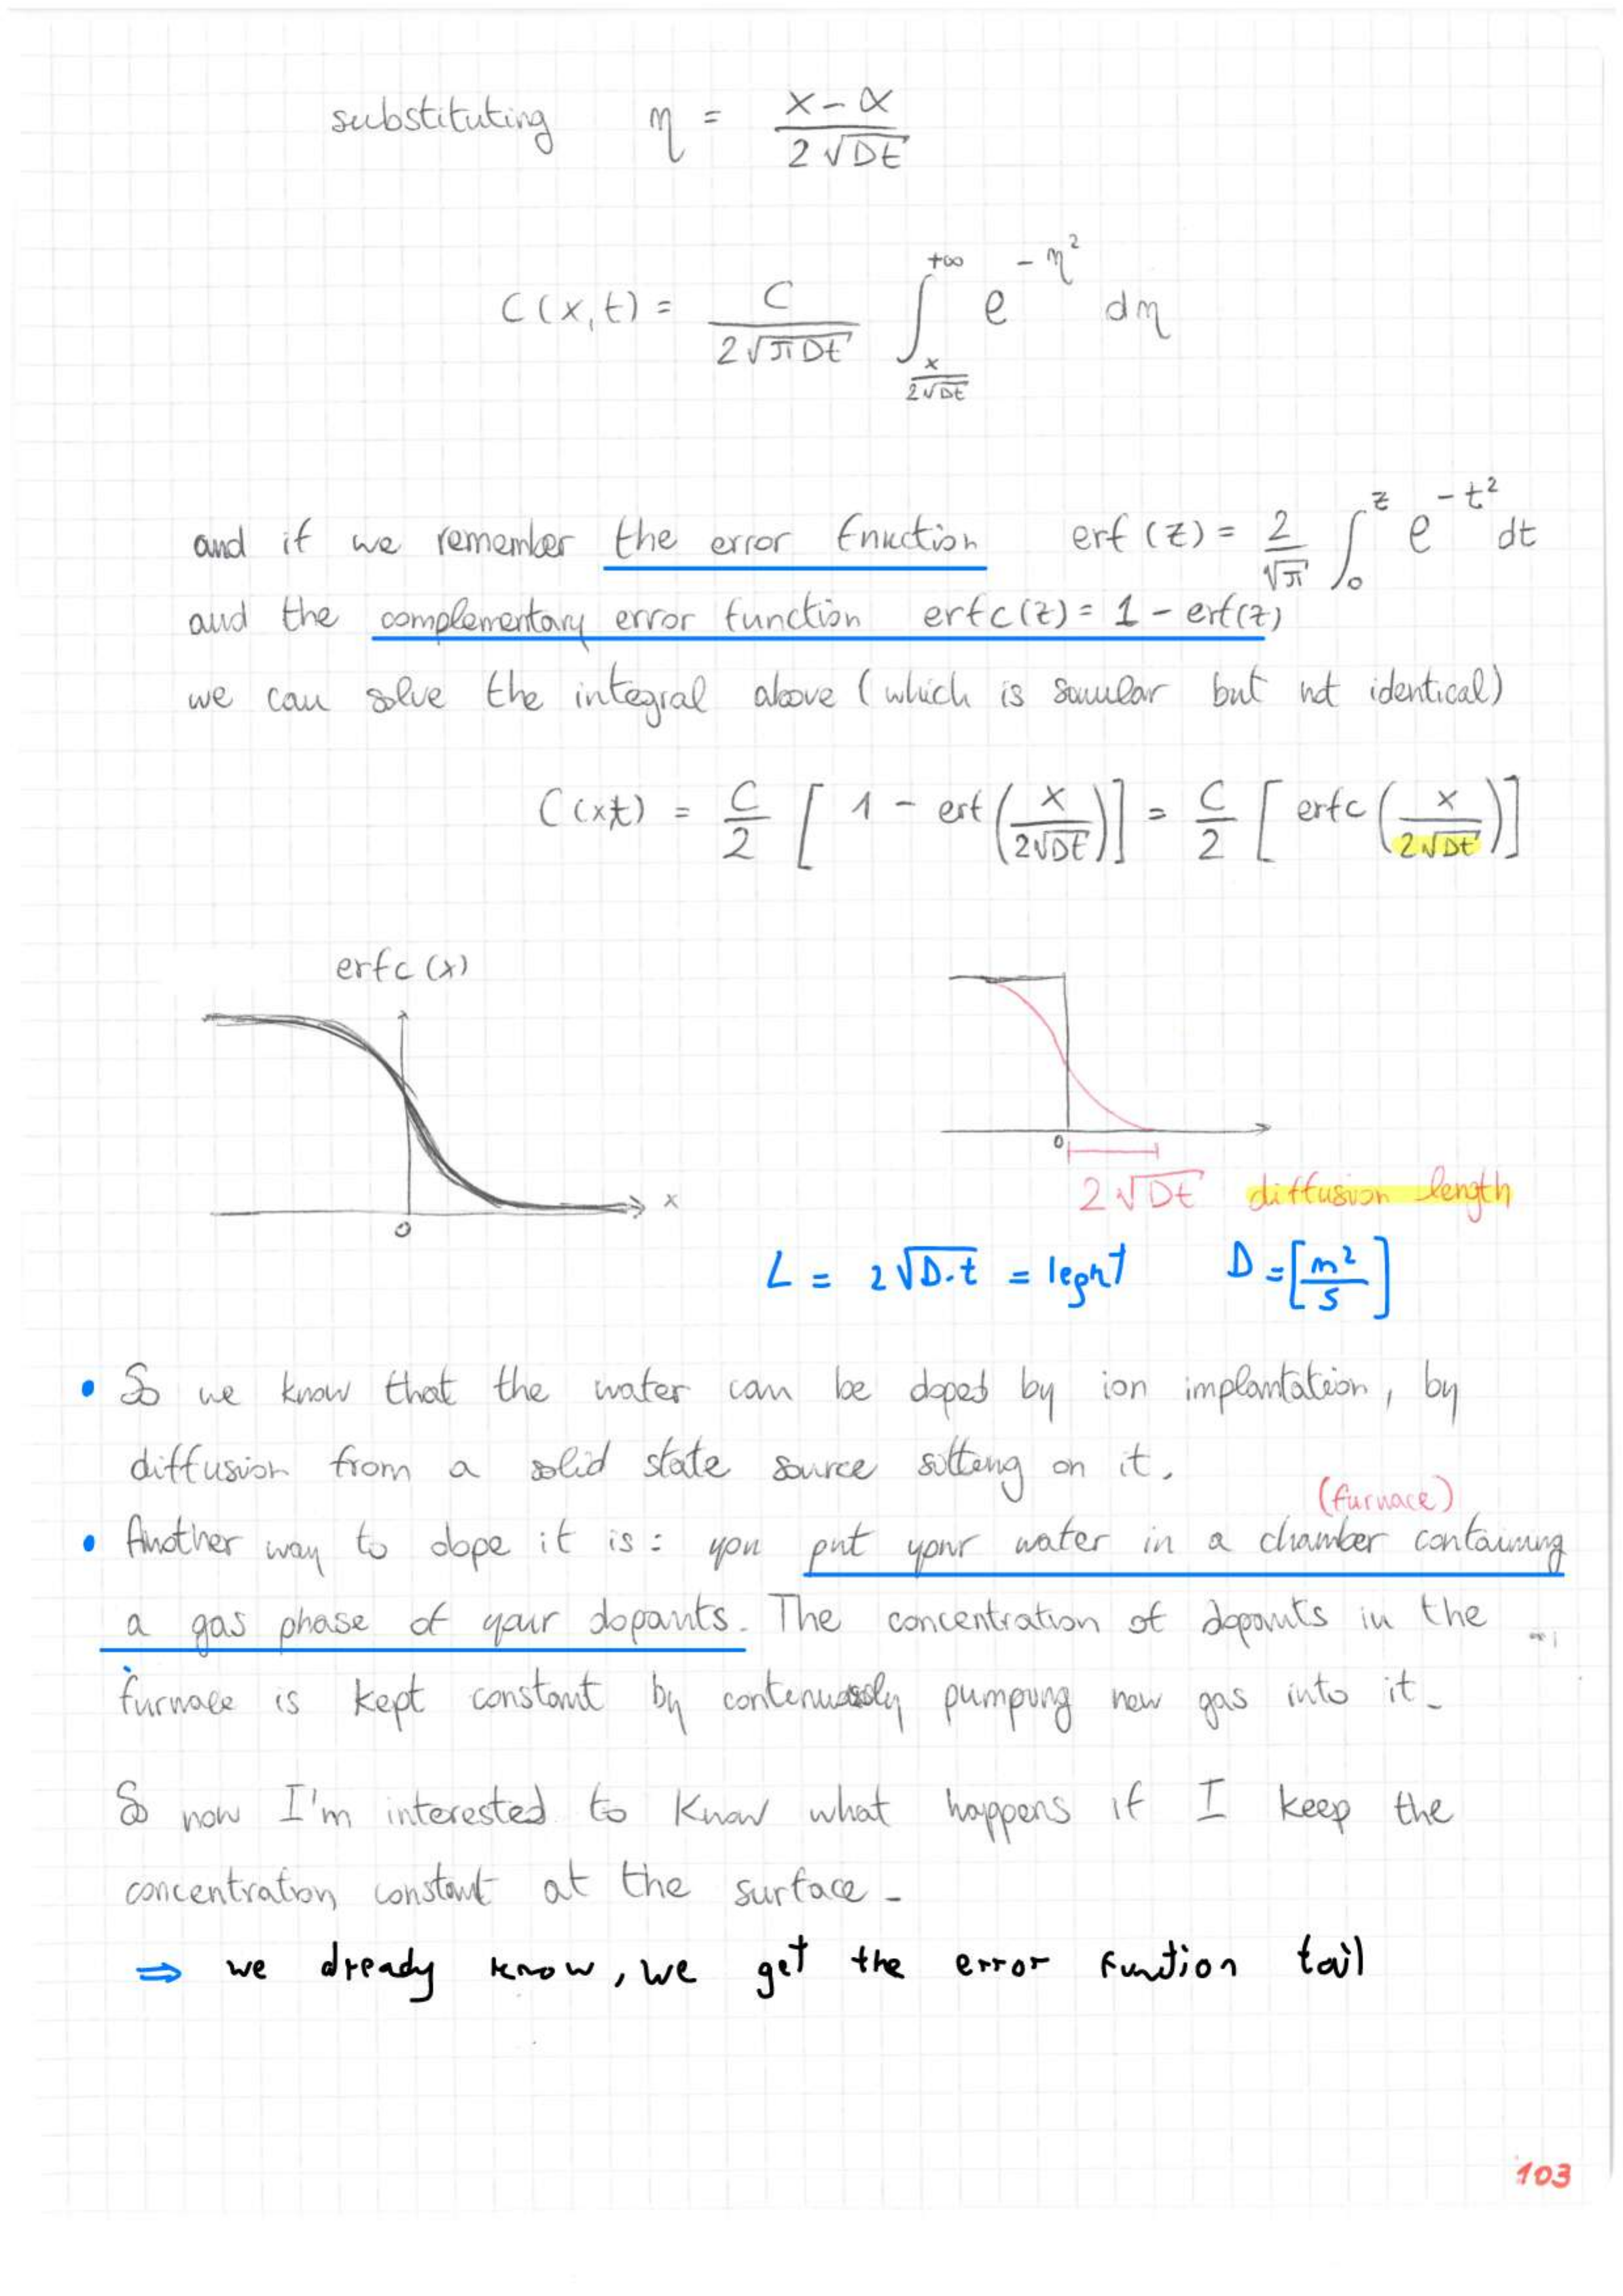 substituting η = x-α / 2√Dt
C(x,t) = C / 2√πDt ∫ x/2√Dt +∞ e^-η² dη
and if we remember the error function erf(z) = 2/√π ∫₀^z e^-t² dt
and the complementary error function erfc(z) = 1 - erf(z)
we can solve the integral above (which is similar but not identical)
C(x,t) = C/2 [1 - erf(x/2√Dt)] = C/2 [erfc(x/2√Dt)]
erfc(x)
x
0
0
2√Dt diffusion length
L = 2√D·t = leght D = [m²/s]
• So we know that the wafer can be doped by ion implantation, by
diffusion from a solid state source sitting on it.
(furnace)
• Another way to dope it is: you put your wafer in a chamber containing
a gas phase of your dopants. The concentration of dopants in the
furnace is kept constant by pumping new gas into it.
So now I'm interested to know what happens if I keep the
concentration constant at the surface -
⇒ we already know, we get the error function tail
103